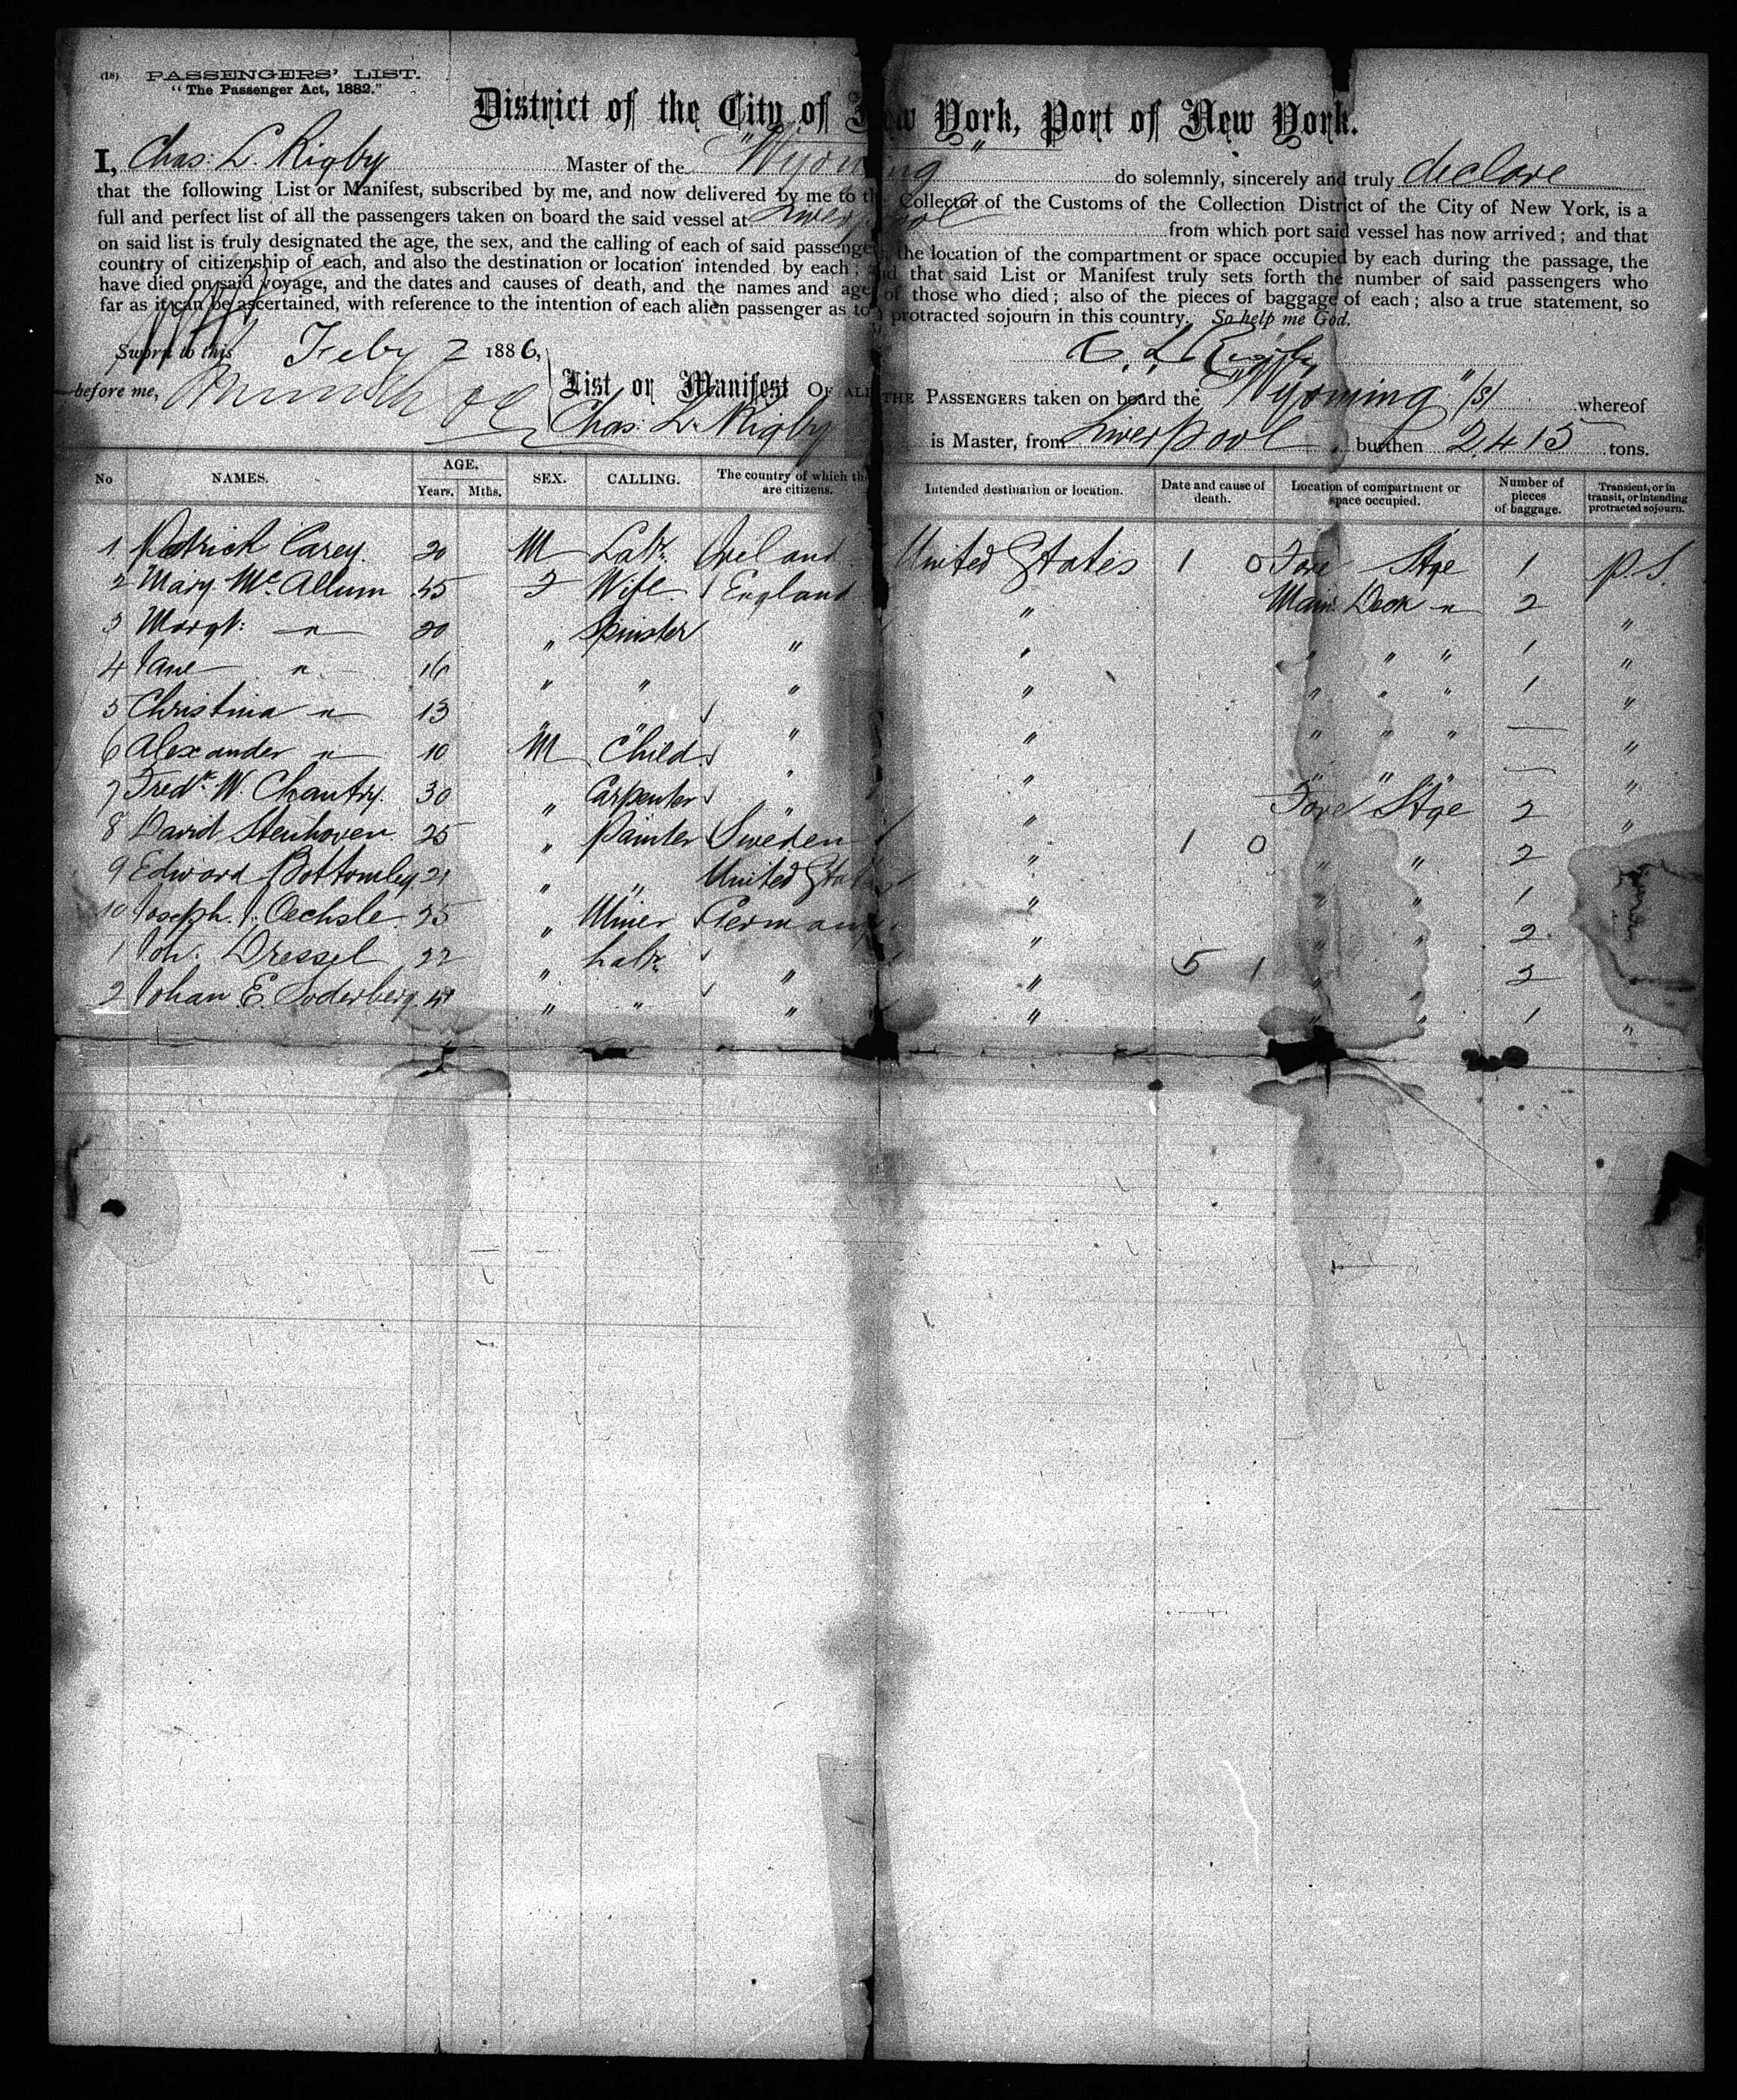 (18) PASSENGERS' LIST.
"The Passenger Act, 1882."
District of the City of New York, Port of New York.
I, Chas: L. Rigby Master of the "Wyoming" do solemnly, sincerely and truly declare
that the following List or Manifest, subscribed by me, and now delivered by me to the Collector of the Customs of the Collection District of the City of New York, is a
full and perfect list of all the passengers taken on board the said vessel at Liverpool from which port said vessel has now arrived; and that
on said list is truly designated the age, the sex, and the calling of each of said passengers, the location of the compartment or space occupied by each during the passage, the
country of citizenship of each, and also the destination or location intended by each; and that said List or Manifest truly sets forth the number of said passengers who
have died on said voyage, and the dates and causes of death, and the names and ages of those who died; also of the pieces of baggage of each; also a true statement, so
far as it can be ascertained, with reference to the intention of each alien passenger as to a protracted sojourn in this country. So help me God.
Sworn to this Feby 2 1886, C. L. Rigby
before me, List or Manifest OF ALL THE PASSENGERS taken on board the "Wyoming" (s) whereof
Chas: L. Rigby is Master, from Liverpool, burthen 2415 tons.
No NAMES. AGE. Years. Mths. SEX. CALLING. The country of which they are citizens. Intended destination or location. Date and cause of death. Location of compartment or space occupied. Number of pieces of baggage. Transient, or in transit, or intending protracted sojourn.
1 Patrick Carey 20 M Labr. Ireland United States 1 0 Fore Stge 1 P.S.
2 Mary McAllum 45 F Wife England " Main Deck " 2 "
3 Margt: " 20 " Spinster " " " " " 1 "
4 Jane " 16 " " " " " " " 1 "
5 Christina " 13 " " " " " " " — "
6 Alexander " 10 M Child " " " " " — "
7 Fredk. W. Chantry 30 " Carpenter " " Fore Stge 2 "
8 David Stenhoven 25 " Painter Sweden " 1 0 " " 2
9 Edward Bottomley 21 " " United States " " " 1
10 Joseph J. Oechsle 25 " Miner Germany " " " 2
1 Joh. Dressel 22 " Labr. " " 5 1 " " 2
2 Johan E. Soderberg 41 " " " " " " 1 "